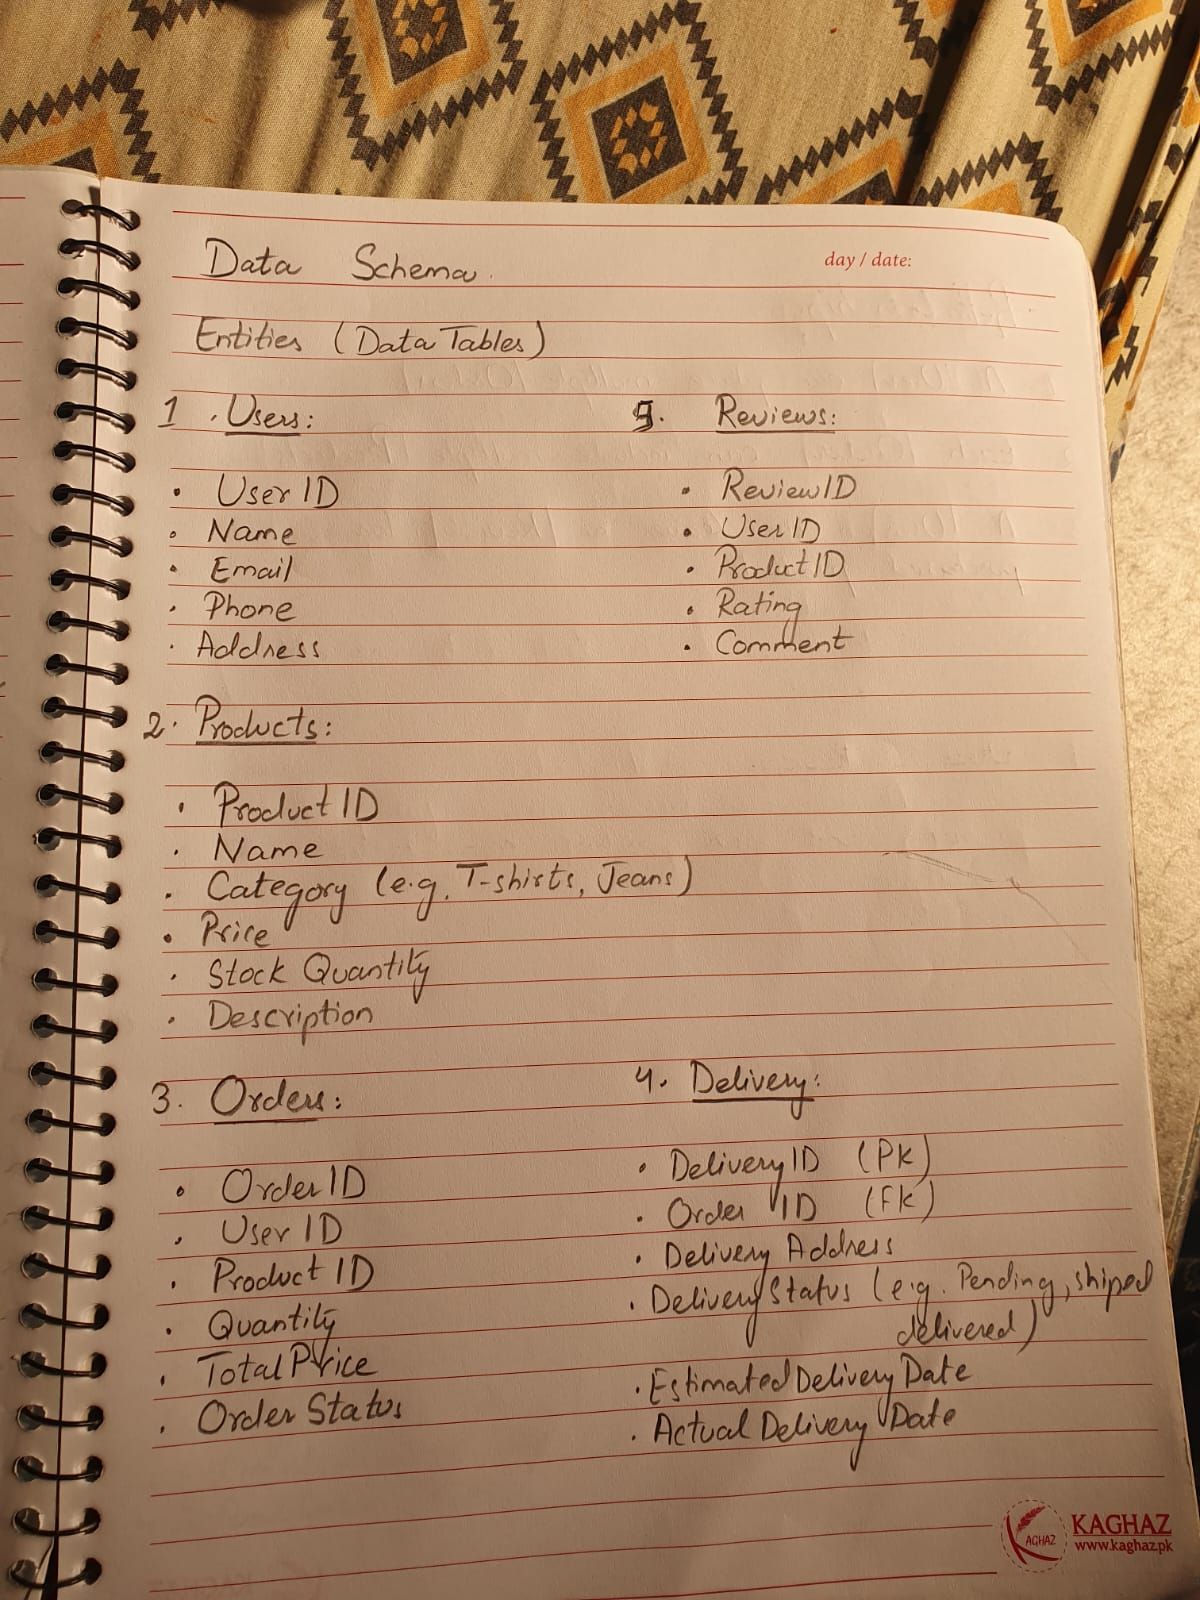 Data Schema.
day / date:
Entities (Data Tables)
1. Users:
• User ID
• Name
• Email
• Phone
• Address
5. Reviews:
• ReviewID
• UserID
• ProductID
• Rating
• Comment
2. Products:
• Product ID
• Name
• Category (e.g. T-shirts, Jeans)
• Price
• Stock Quantity
• Description
3. Orders:
• Order ID
• User ID
• Product ID
• Quantity
• Total Price
• Order Status
4. Delivery:
• DeliveryID (PK)
• Order ID (FK)
• Delivery Address
• Delivery Status (e.g. Pending, shiped
delivered)
• Estimated Delivery Date
• Actual Delivery Date
KAGHAZ
AGHAZ
www.kaghaz.pk